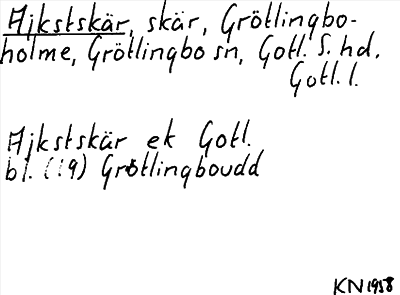 Ajkstskär, skär, Grötlingbo-
holme, Grötlingbo sn, Gotl. S. hd.
Gotl. l.
Ajkstskär ek Gotl.
bl. (:9) Grötlingboudd
KN 1958